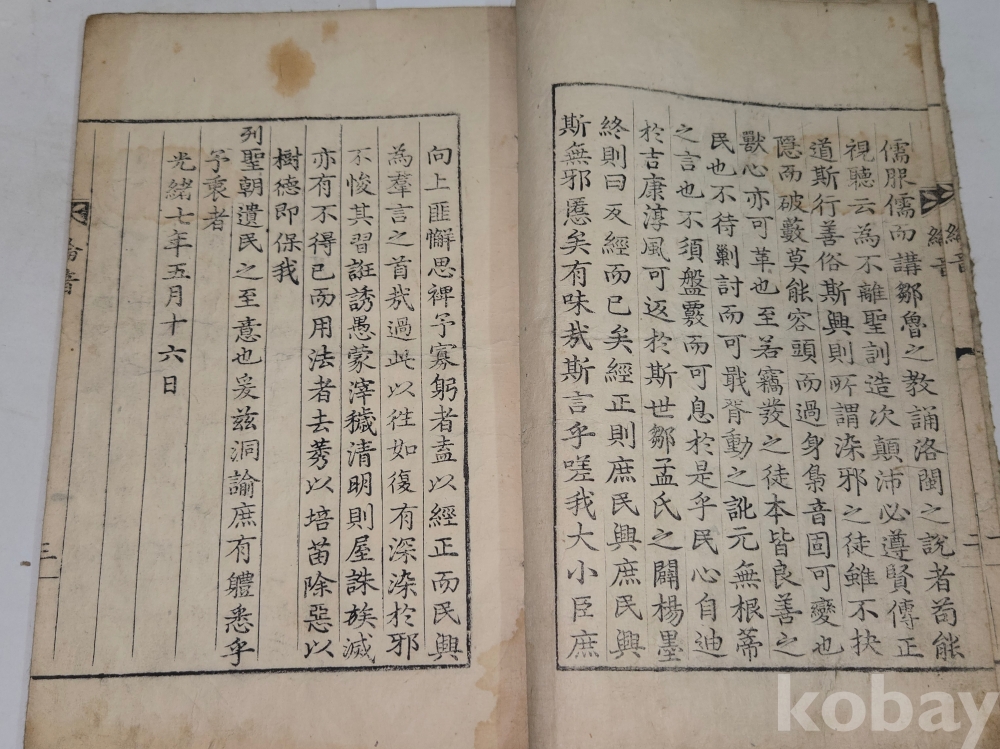 儒服儒而講鄒魯之教誦洛閩之說者苟能
視聽云為不離聖訓造次顛沛必遵賢傳正
道斯行善俗斯興則所謂染邪之徒雖不抉
隱而破藪莫能容頭而過身梟音固可變也
獸心亦可革也至若竊發之徒本皆良善之
民也不待剿討而可戢脅動之訛元無根蒂
之言也不須盤覈而可息於是乎民心自迪
於吉康淳風可返於斯世鄒孟氏之闢楊墨
終則曰反經而已矣經正則庶民興庶民興
斯無邪慝矣有味哉斯言乎嗟我大小臣庶
綸音
二
向上匪懈思裨予寡躬者盍以經正而民興
為羣言之首哉過此以往如復有深染於邪
不悛其習誑誘愚蒙滓穢清明則屋誅族滅
亦有不得已而用法者去莠以培苗除惡以
樹德即保我
列聖朝遺民之至意也爰茲洞諭庶有軆悉乎
予衷者
光緒七年五月十六日
三
kobay